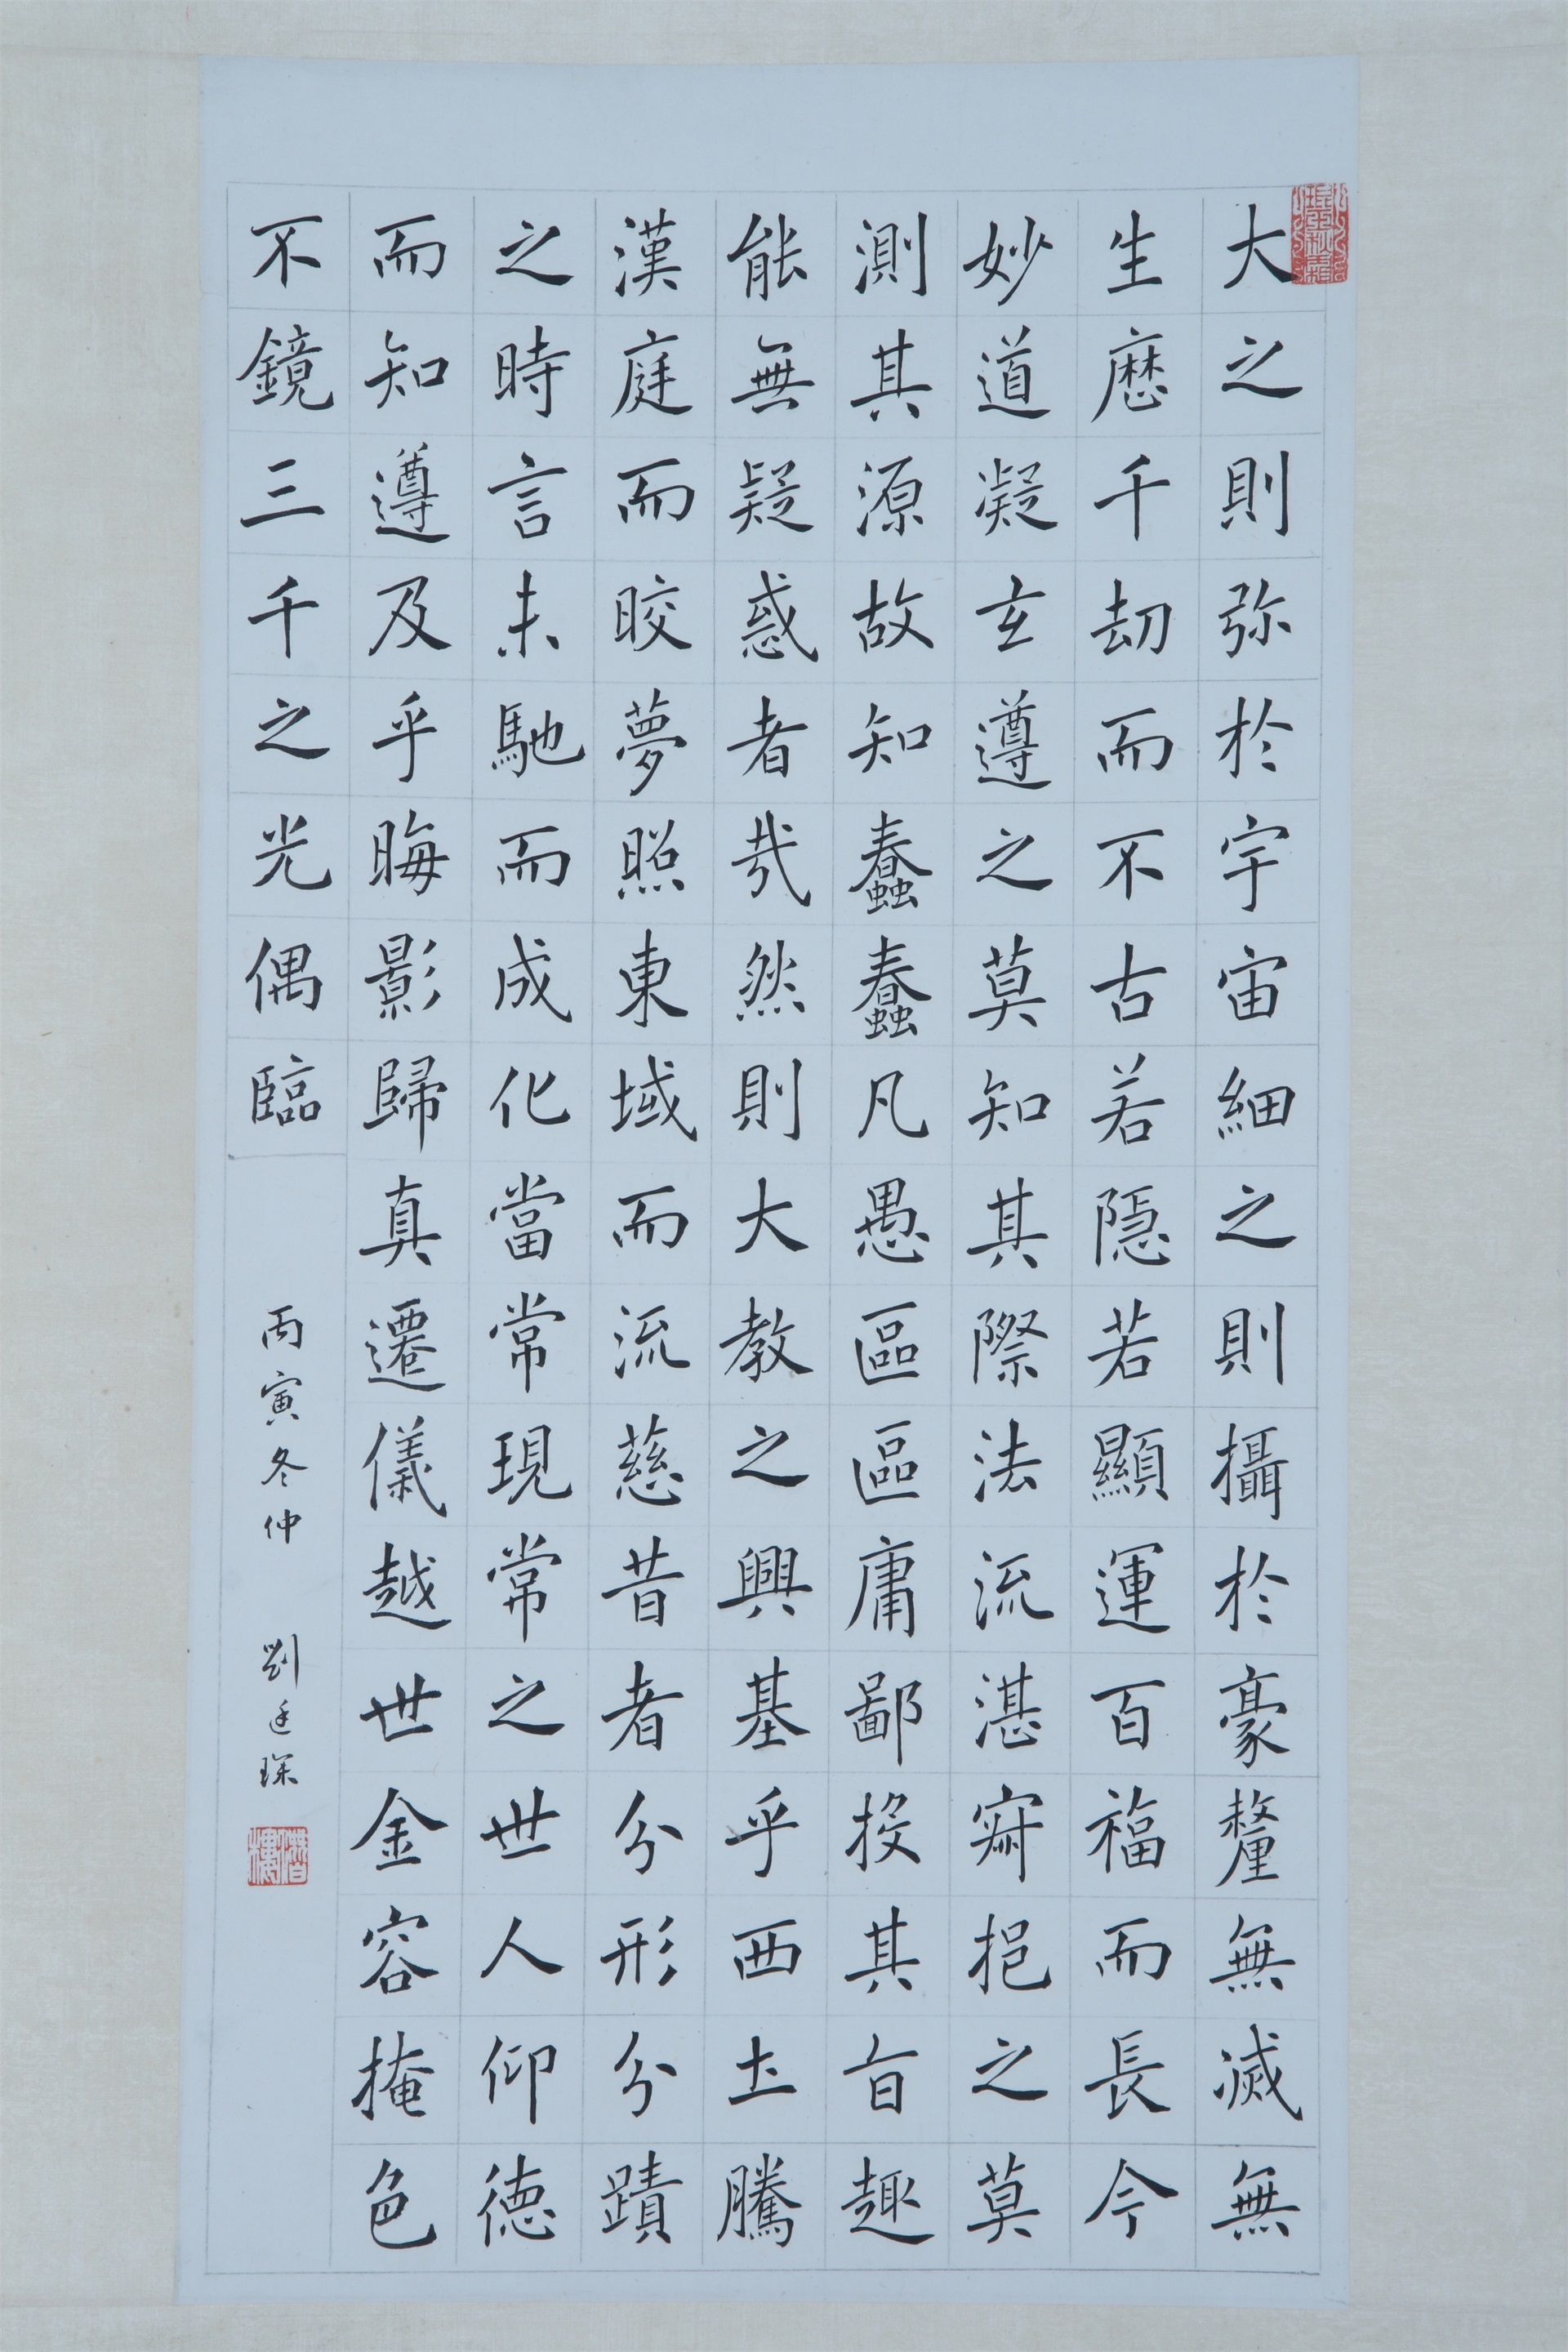 大之則弥於宇宙細之則攝於豪釐無滅無
生歷千劫而不古若隱若顯運百福而長今
妙道凝玄遵之莫知其際法流湛寂挹之莫
測其源故知蠢蠢凡愚區區庸鄙投其旨趣
能無疑惑者哉然則大教之興基乎西土騰
漢庭而皎夢照東域而流慈昔者分形分蹟
之時言未馳而成化當常現常之世人仰德
而知遵及乎晦影歸真遷儀越世金容掩色
不鏡三千之光偶臨
丙寅冬仲 劉廷琛
潛樓